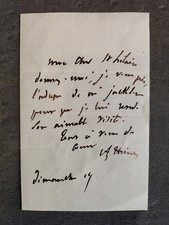 mon cher St hilaire
donnez-moi, je vous prie,
l'adresse de m.
pour que je lui rende
son aimable visite.
Tout à vous de
coeur
dimanche 19